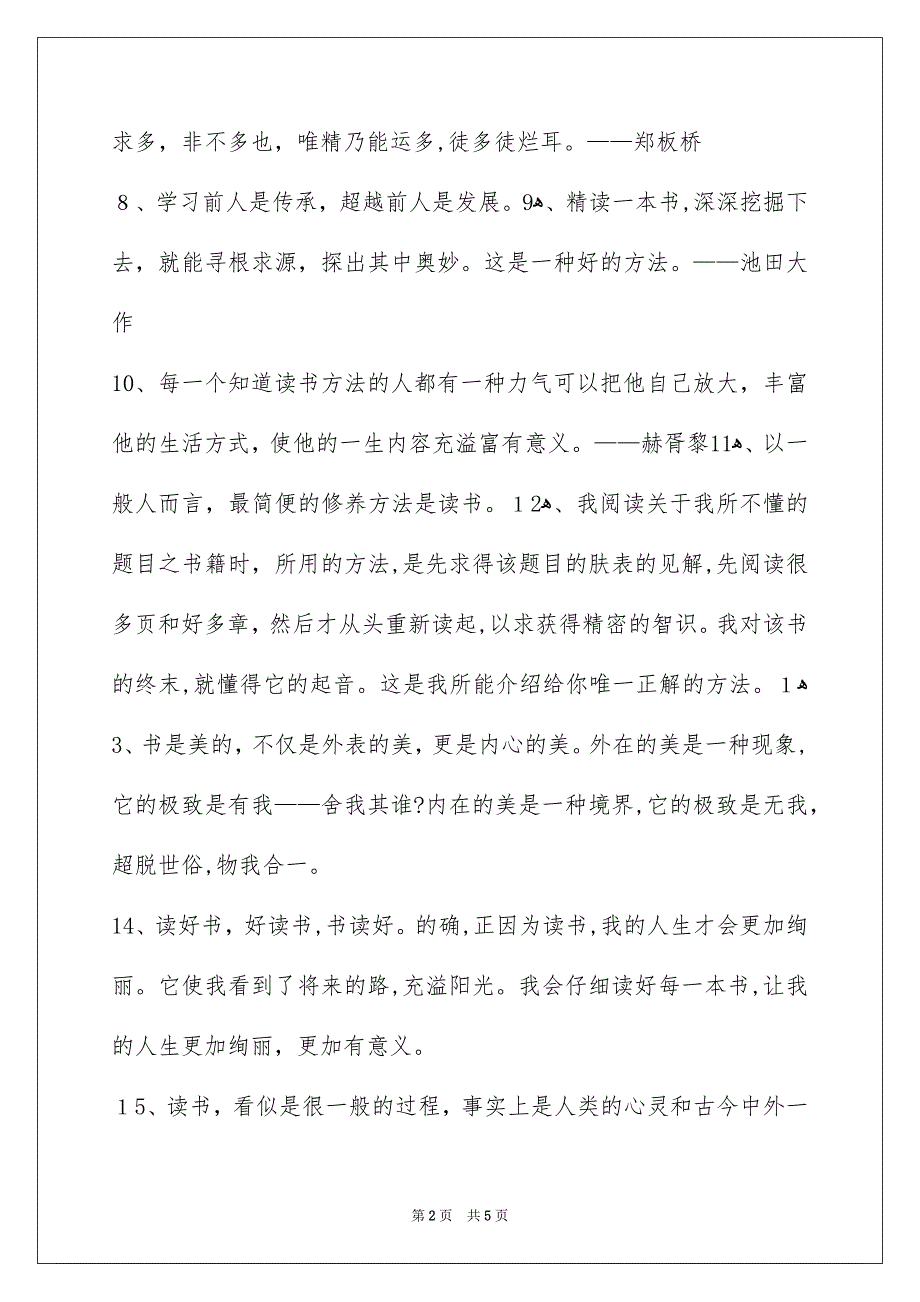 求多，非不多也，唯精乃能运多,徒多徒烂耳。——郑板桥
８、学习前人是传承，超越前人是发展。9ﻫ、精读一本书,深深挖掘下
去，就能寻根求源，探出其中奥妙。这是一种好的方法。——池田大
作
10、每一个知道读书方法的人都有一种力气可以把他自己放大，丰富
他的生活方式，使他的一生内容充溢富有意义。——赫胥黎11ﻫ、以一
般人而言，最简便的修养方法是读书。１2ﻫ、我阅读关于我所不懂的
题目之书籍时，所用的方法,是先求得该题目的肤表的见解,先阅读很
多页和好多章，然后才从头重新读起,以求获得精密的智识。我对该书
的终末,就懂得它的起音。这是我所能介绍给你唯一正解的方法。１ﻫ
3、书是美的，不仅是外表的美，更是内心的美。外在的美是一种现象，
它的极致是有我——舍我其谁?内在的美是一种境界,它的极致是无我，
超脱世俗,物我合一。
14、读好书，好读书,书读好。的确,正因为读书,我的人生才会更加绚
丽。它使我看到了将来的路,充溢阳光。我会仔细读好每一本书,让我
的人生更加绚丽，更加有意义。
１5、读书，看似是很一般的过程，事实上是人类的心灵和古今中外一
第 2 页 共 5 页